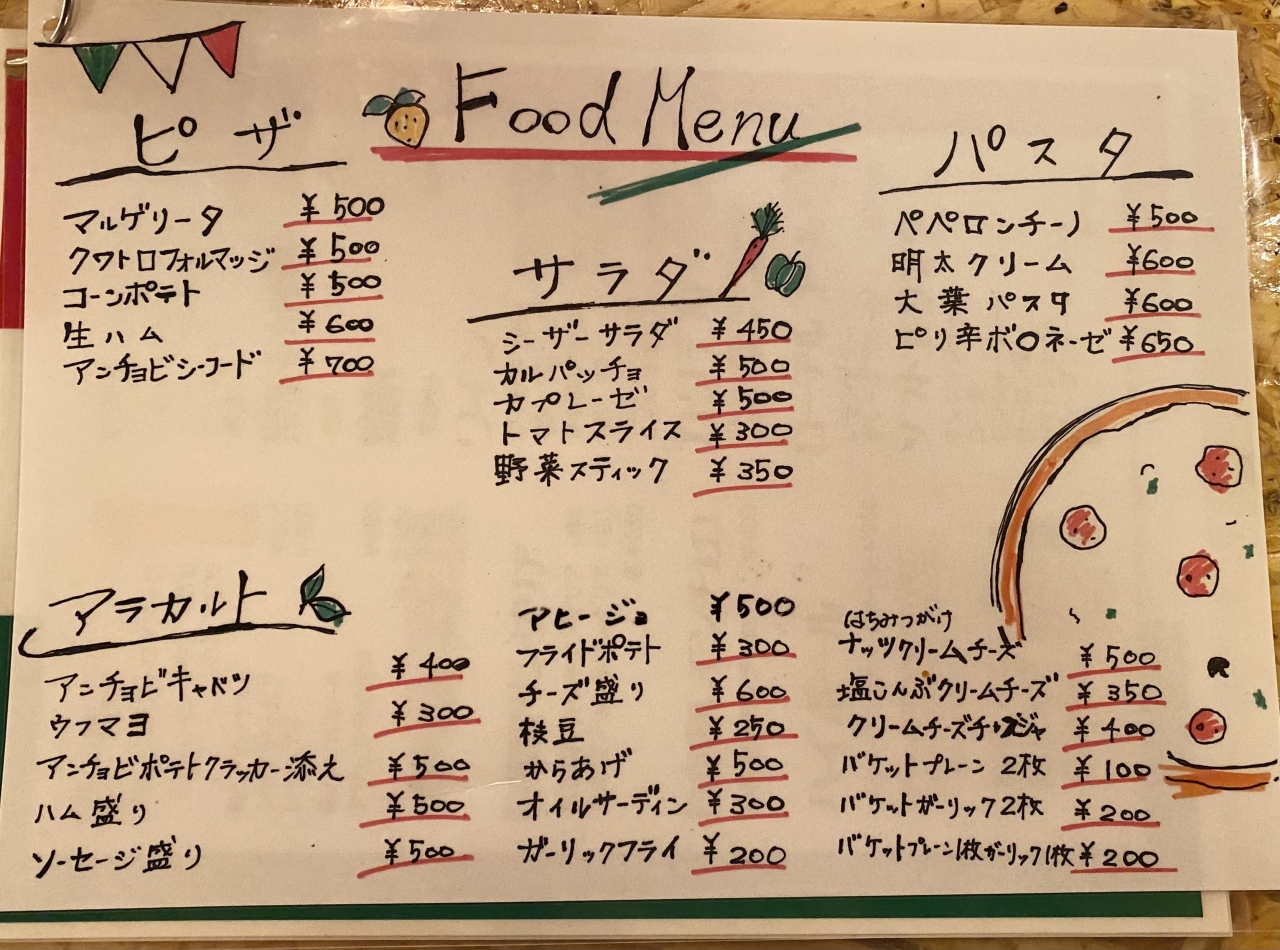 Food Menu
ピザ
マルゲリータ ¥500
クワトロフォルマッジ ¥500
コーンポテト ¥500
生ハム ¥600
アンチョビシーフード ¥700
サラダ
シーザーサラダ ¥450
カルパッチョ ¥500
カプレーゼ ¥500
トマトスライス ¥300
野菜スティック ¥350
パスタ
ペペロンチーノ ¥500
明太クリーム ¥600
大葉パスタ ¥600
ピリ辛ボロネーゼ ¥650
アラカルト
アンチョビキャベツ ¥400
ウフマヨ ¥300
アンチョビポテトクラッカー添え ¥500
ハム盛り ¥500
ソーセージ盛り ¥500
アヒージョ ¥500
フライドポテト ¥300
チーズ盛り ¥600
枝豆 ¥250
からあげ ¥500
オイルサーディン ¥300
ガーリックフライ ¥200
はちみつがけ
ナッツクリームチーズ ¥500
塩こんぶクリームチーズ ¥350
クリームチーズチャンジャ ¥400
バケットプレーン 2枚 ¥100
バケットガーリック2枚 ¥200
バケットプレーン1枚ガーリック1枚 ¥200